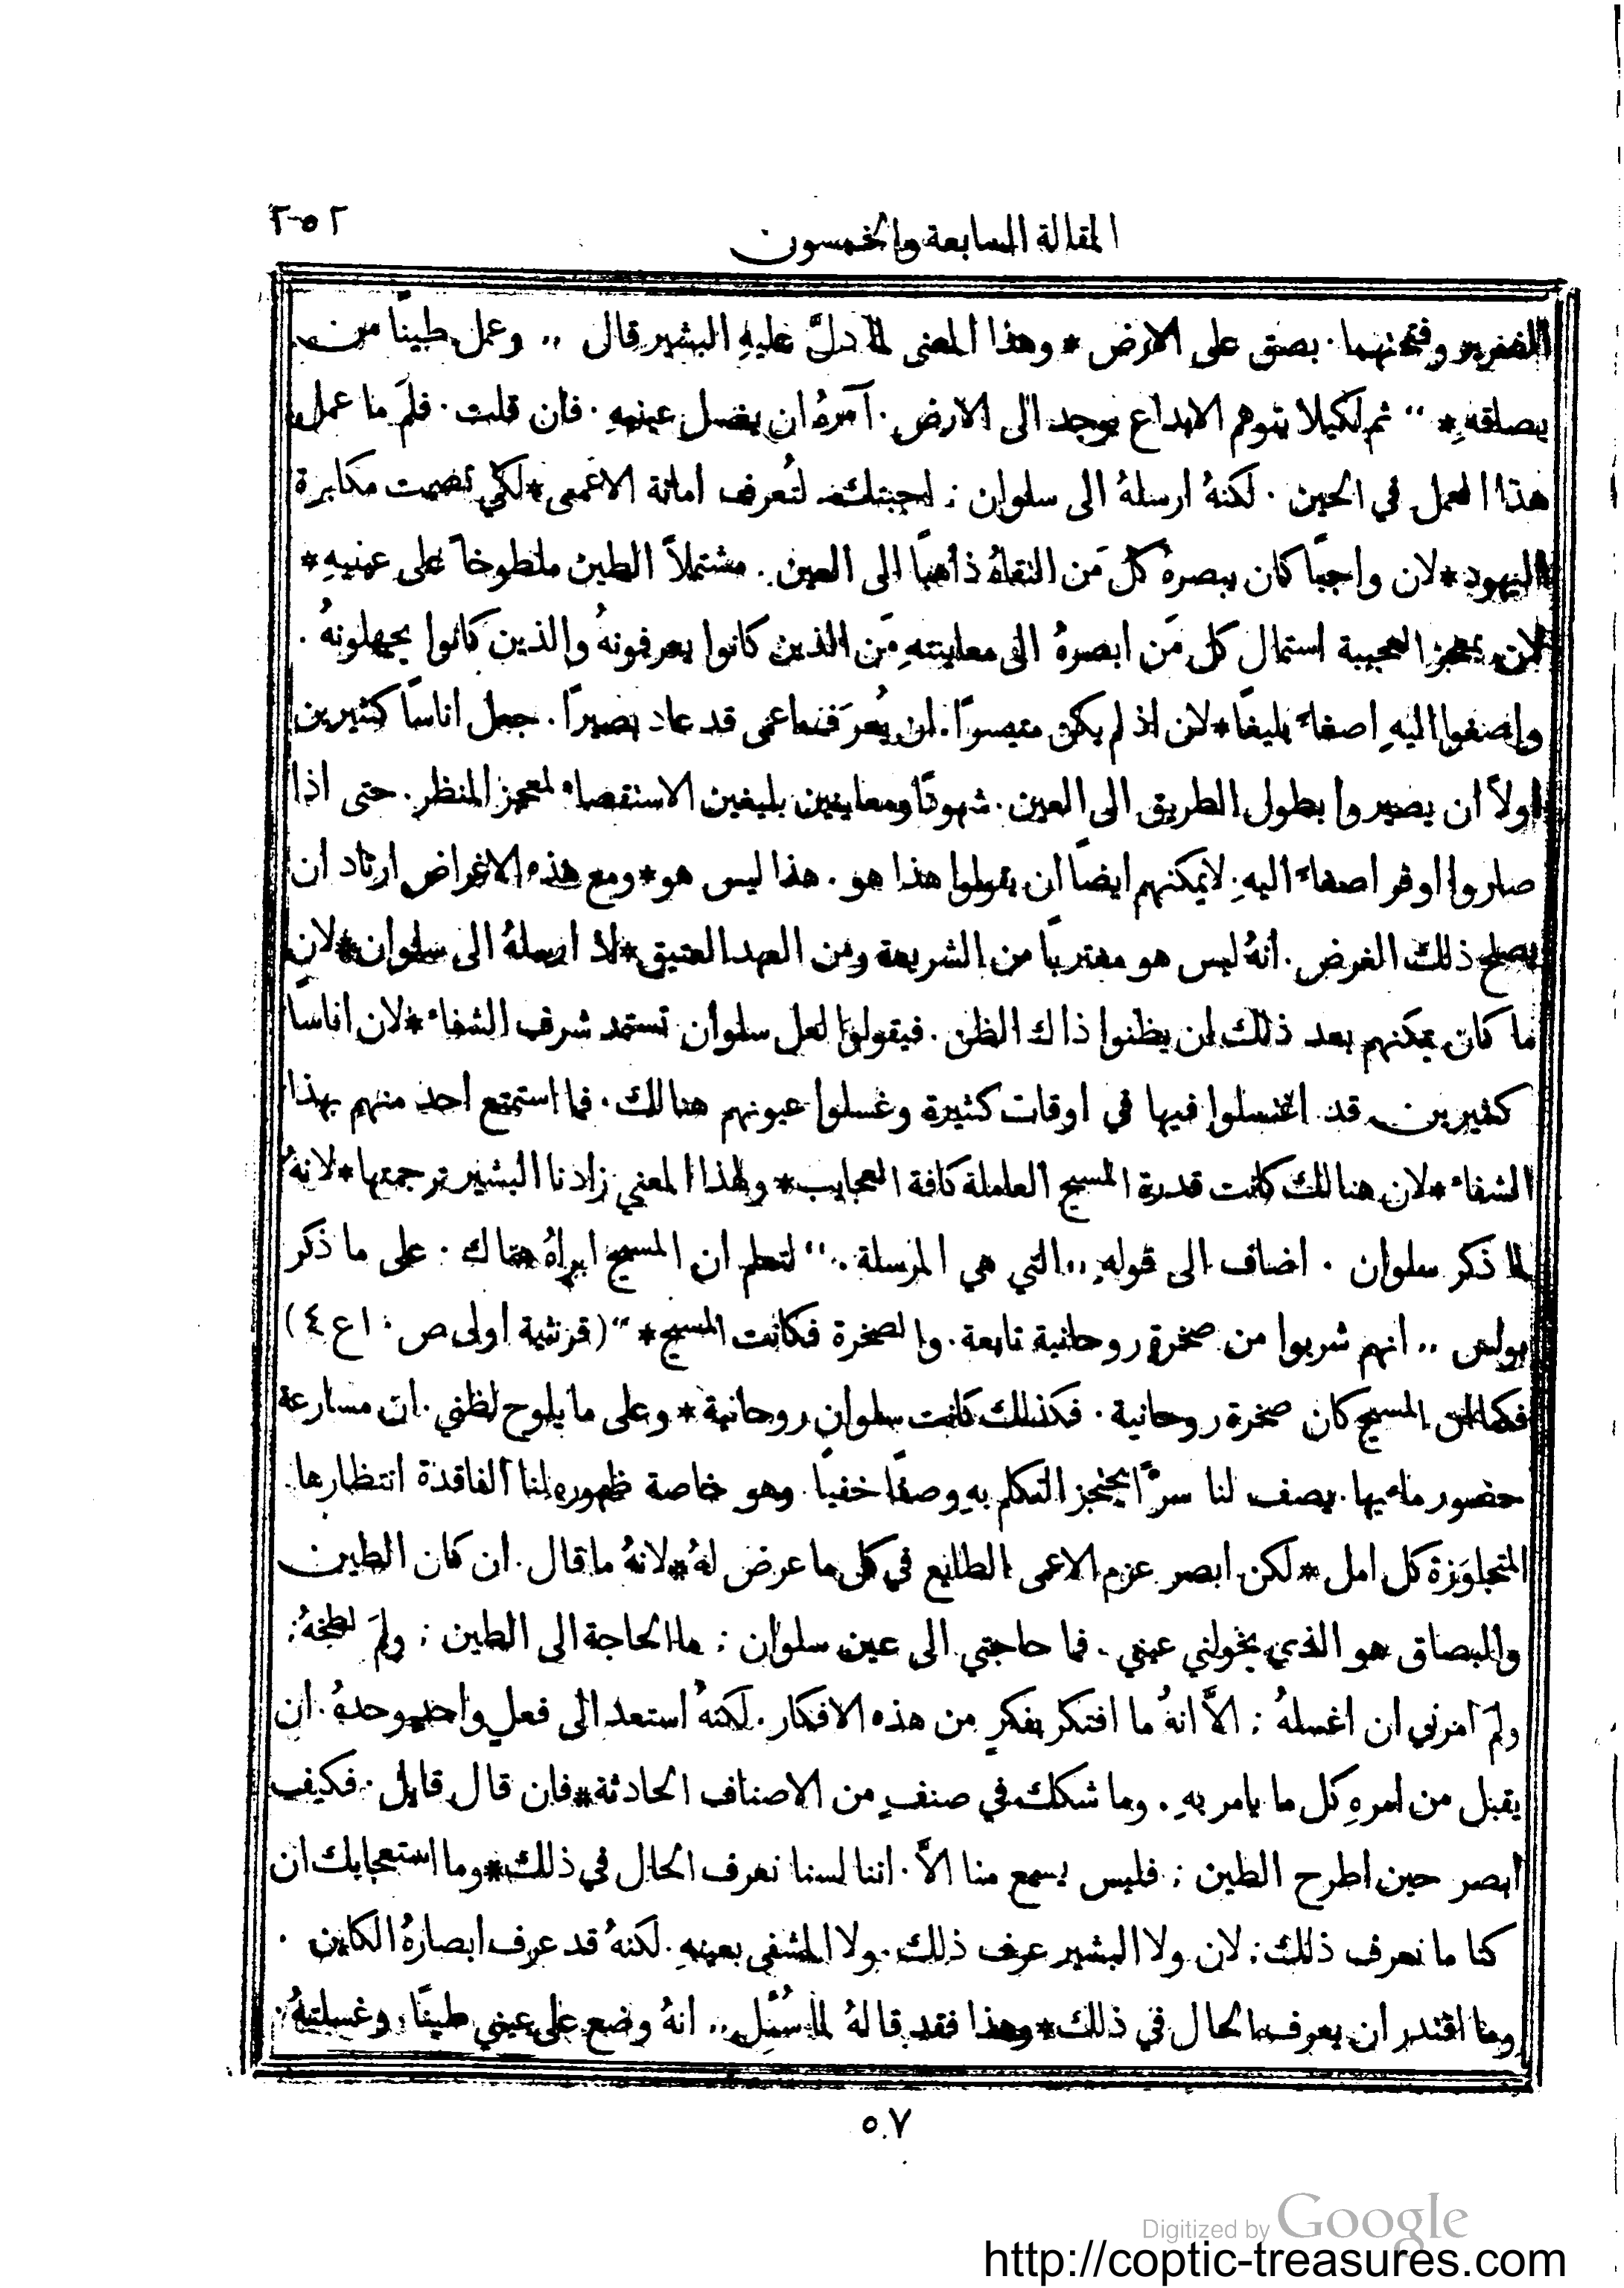 المقالة السابعة والخمسون
٢٥٢
الضرير وفتحتهما. بصق على الارض * وهذا المعنى لما دلَّ عليهِ البشير قال ,, وعمل طيناً من
بصاقهِ * “ ثم لكيلا يتوهم الابداع يوجد الى الارض. آمرهُ ان يغسل عينيهِ. فان قلت. فلمَ ما عمل
هذا العمل في الحين. لكنهُ ارسلهُ الى سلوان : اجبتك. لتُعرف امانة الاعمى * لكي تصمت مكابرة
اليهود * لان واجباً كان يبصرهُ كل مَن التقاهُ ذاهباً الى العين. مشتملاً الطين ملطوخاً على عينيهِ *
لان بمعجز العجيبة استمال كل مَن ابصرهُ الى معاينتهِ مَن الذين كانوا يعرفونهُ والذين كانوا يجهلونهُ.
واصغوا اليهِ اصغاءً بليغاً * لان اذ لم يكن متيسراً. ان يُعرَف اعمى قد عاد بصيراً. جعل اناساً كثيرين
اولاً ان يصيروا بطول الطريق الى العين. شهوداً ومعاينين بليغين الاستقصاء لمعجز المنظر. حتى اذا
صاروا اوفر اصغاءً اليهِ. لا يمكنهم ايضاً ان يقولوا هذا هو. هذا ليس هو * ومع هذه الاغراض ارتاد ان
يصلح ذلك الغرض. انهُ ليس هو مغترباً من الشريعة ومن العهد العتيق * لما ارسلهُ الى سلوان * لان
ما كان يمكنهم بعد ذلك ان يظنوا ذاك الظن. فيقولوا لعل سلوان تستمد شرف الشفاء * لان اناساً
كثيرين قد اغتسلوا فيها في اوقات كثيرة وغسلوا عيونهم هنالك. فما استمتع احد منهم بهذا
الشفاء * لان هنالك كانت قدرة المسيح العاملة كافة العجايب * ولهذا المعنى زادنا البشير ترجمتها * لانهُ
لما ذكر سلوان. اضاف الى قولهِ ,, التي هي المرسلة. “ لتعلم ان المسيح ابراهُ هناك. على ما ذكر
بولس ,, انهم شربوا من صخرةٍ روحانية تابعة. والصخرة فكانت المسيح * “ (قرنثية اولى ص ١٠ ع ٤)
فكما ان المسيح كان صخرة روحانية. فكذلك كانت سلوان روحانية * وعلى ما يلوح لظني. ان مسارعة
حضور مائيها. يصف لنا سرًّا يحتجز التكلم بهِ وصفاً خفياً. وهو خاصة ظهوره لنا الفاقدة انتظارها.
المتجاوَزة كل امل * لكن ابصر عزم الاعمى الطايع في كل ما عرض لهُ * لانهُ ما قال. ان كان الطين
والبصاق هو الذي يخولني عيني. فما حاجتي الى عين سلوان : ما الحاجة الى الطين : ولمَ لطخهُ :
ولمَ امرني ان اغسلهُ : الاَّ انهُ ما افتكر بفكرٍ من هذه الافكار. لكنهُ استعد الى فعلٍ واحدٍ وحدهُ. ان
يقبل من امرهِ كل ما يامر بهِ. وما شكك في صنفٍ من الاصناف الحادثة * فان قال قايل. فكيف
ابصر حين اطرح الطين : فليس يسمع منا الاَّ. اننا لسنا نعرف الحال في ذلك * وما استعجابك ان
كنا ما نعرف ذلك : لان ولا البشير عرف ذلك. ولا المشفى بعينهِ. لكنهُ قد عرف ابصارهُ الكاين.
وما اقتدر ان يعرف الحال في ذلك * وهذا فقد قالهُ لما سُئل ,, انهُ وضع على عيني طيناً وغسلتهُ :
٥٧
Digitized by Google
http://coptic-treasures.com